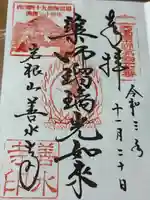 奉拝
令和三年
十一月二十日
薬師瑠璃光如来
岩根山善水寺
善水
寺印